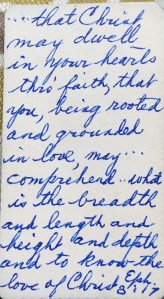 ... that Christ
may dwell
in your hearts
thro' faith, that
you, being rooted
and grounded
in love, may...
comprehend.. what
is the breadth
and length and
height and depth
and to know the
love of Christ Eph.
3:17